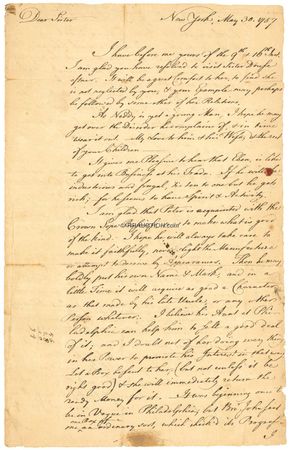 Dear Sister New York, May 30. 1757
I have before me yours of the 9th & 16th Inst.
I am glad you have resolved to visit Sister Douse
oftner. It will be a great Comfort to her, to find she
is not neglected by you, & your Example may perhaps
be followed by some other of her Relations.
As Neddy is yet a young Man, I hope he may
get over the Disorder he complains of, & in time
wear it out. My Love to him & his Wife, & the rest
of your Children.
It gives me Pleasure to hear that Eben. is like
to get into Business at his Trade. If he will be
industrious and frugal, 'tis ten to one but he gets
rich; for he seems to have Spirit & Activity.
I am glad that Peter is acquainted with the
Crown Soap Business, so as to make what is good
of the kind. I hope he will always take care to
make it faithfully, never slight the Manufacture
or attempt to deceive by Appearances. Then he may
boldly put his own Name & Mark, and in a
little Time it will acquire as good a Character
as that made by his late Uncle, or any other
Person whatever. I believe his Aunt at Phi-
ladelphia can help him to sell a good deal
of it; and I doubt not of her doing every thing
in her Power to promote his Interest in that way.
Let a Box be sent to her, (but not unless it be
right good) & she will immediately return the
ready Money for it. It was beginning once to
be in Vogue in Philadelphia, but Bro. John sent
me one Box, an ordinary sort, which check'd its Progress.
I